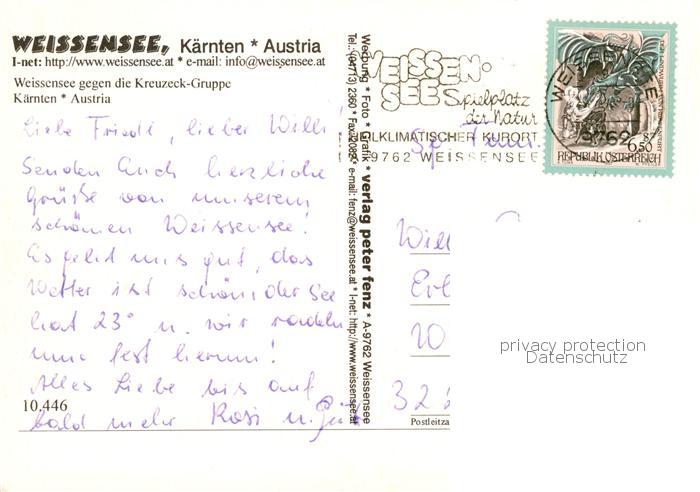 WEISSENSEE, Kärnten * Austria
I-net: http://www.weissensee.at * e-mail: info@weissensee.at
Weissensee gegen die Kreuzeck-Gruppe
Kärnten * Austria
Liebe Friedl, lieber Willi!
Senden Euch herzliche
Grüße von unserem
schönen Weissensee!
Es geht uns gut, das
Wetter ist schön, der See
hat 23° u. wir radeln
fest herum!
Alles Liebe bis auf
bald mehr Rosi u.
10.446
Werbung * Foto * Grafik * verlag peter fenz * A-9762 Weissensee
Tel.: (04713) 2360 * Fax 22082 * e-mail: fenz@weissensee.at * I-net: http://www.weissensee.at
WEISSEN-
SEE Spielplatz
der Natur
HEILKLIMATISCHER KURORT
A-9762 WEISSENSEE
9762
6.50
REPUBLIK ÖSTERREICH
Will
10
32
Postleitza
privacy protection
Datenschutz